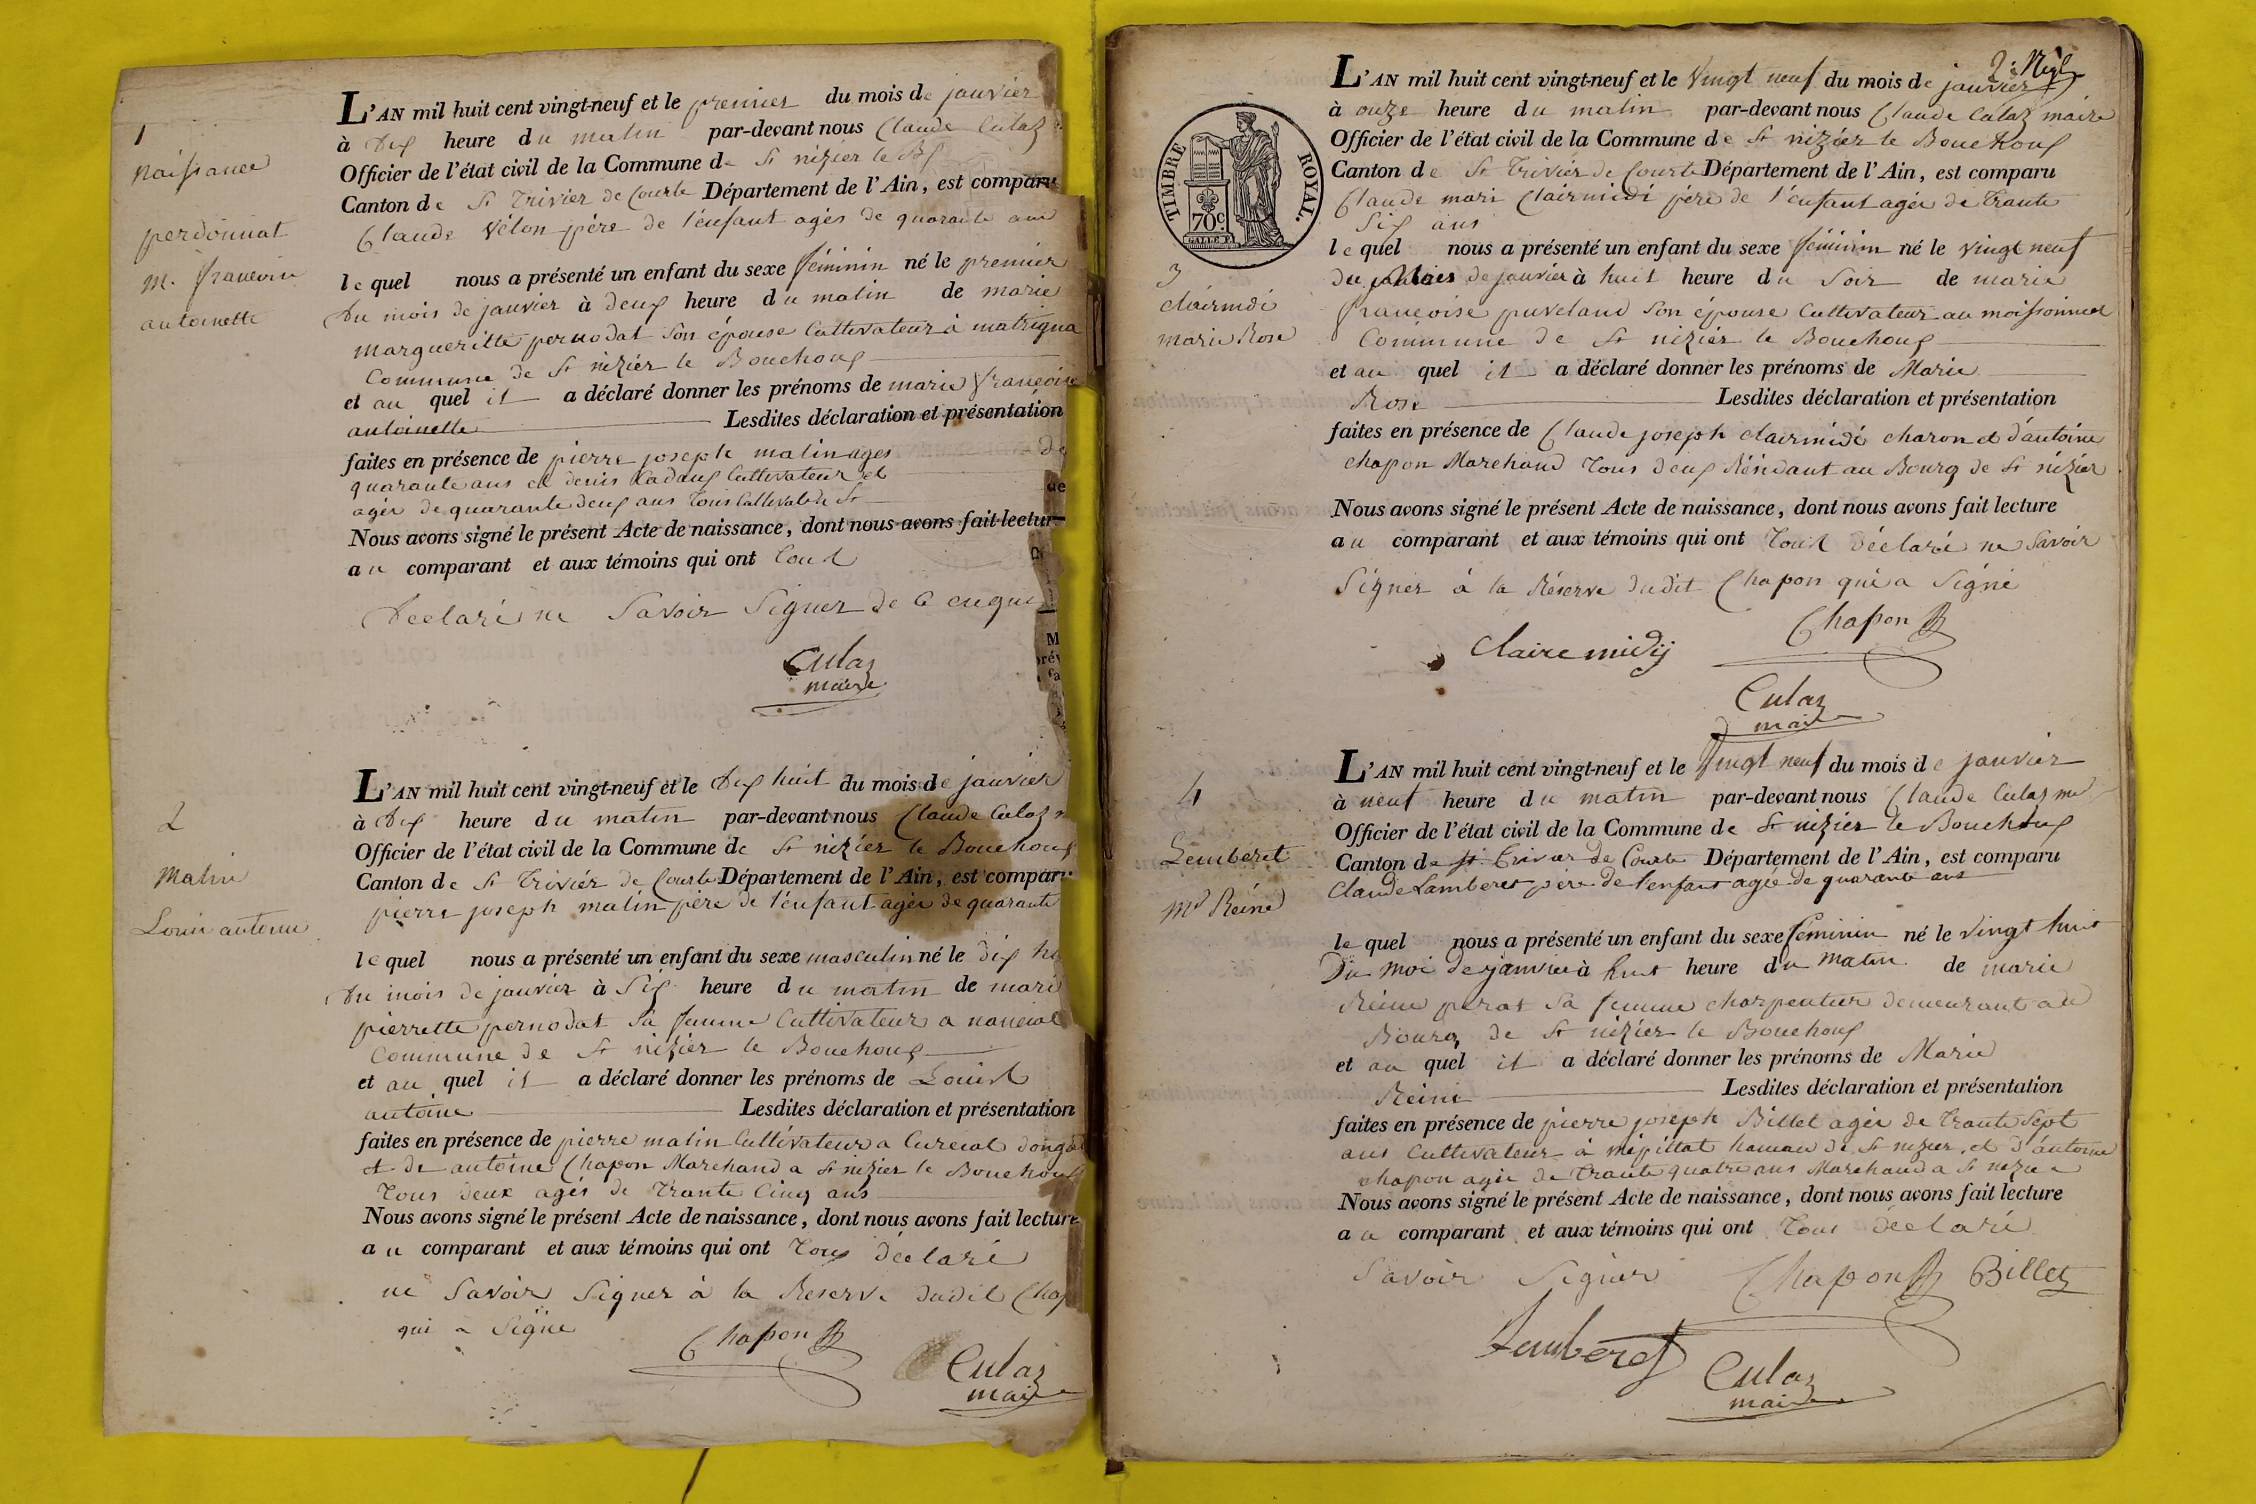 1
naissance
perdonnat
m. francoise
antoinette
L'AN mil huit cent vingt-neuf et le premier du mois de janvier
à dix heure du matin par-devant nous Claude Culaz
Officier de l'état civil de la Commune de St nizier le Bx
Canton de St Trivier de Courte Département de l'Ain, est comparu
Claude Vélon père de l'enfant agés de quarante ans
lequel nous a présenté un enfant du sexe féminin né le premier
Du mois de janvier à deux heure du matin de marie
margueritte pernodat son épouse Cultivateur à matrigna
Commune de St nizier le Bouchoux
et au quel il a déclaré donner les prénoms de marie françoise
antoinette Lesdites déclaration et présentation
faites en présence de pierre joseph matin ages
quarante ans et denis Cadoux Cultivateur et
agés de quarante deux ans Tous Cultivat de St
Nous avons signé le présent Acte de naissance, dont nous avons fait lecture
au comparant et aux témoins qui ont tout
Declaré ne Savoir Signer de ce enquis
Culaz
maire
2
Matin
Louis antoine
L'AN mil huit cent vingt-neuf et le Dix huit du mois de janvier
à Dix heure du matin par-devant nous Claude Culaz m
Officier de l'état civil de la Commune de St nizier le Bouchoux
Canton de St Trivier de Courte Département de l'Ain, est comparu
pierre joseph matin père de l'enfant agés de quarante
lequel nous a présenté un enfant du sexe masculin né le dix hu
Du mois de janvier à Six heure du matin de mari
pierrette pernodat sa femme Cultivateur a nancial
Commune de St nizier le Bouchoux
et au quel il a déclaré donner les prénoms de Louis
antoine Lesdites déclaration et présentation
faites en présence de pierre matin Cultivateur a Curcial dongal
et de antoine Chapon Marchand a St nizier le Bouchoux
Tous deux agés de Trante Cinq ans
Nous avons signé le présent Acte de naissance, dont nous avons fait lecture
au comparant et aux témoins qui ont Tous déclaré
ne Savoir Signer à la Reserve dudit Chap
qui a Signé
Chapon
Culaz
maire
TIMBRE ROYAL.
70c
3
clairmidi
marie Rose
L'AN mil huit cent vingt-neuf et le Vingt neuf du mois de janvier
à onze heure du matin par-devant nous Claude Culaz maire
Officier de l'état civil de la Commune de St nizier le Bouchoux
Canton de St Trivier de Courte Département de l'Ain, est comparu
Claude mari Clairmidi père de l'enfant agée de Trante
Six ans
lequel nous a présenté un enfant du sexe féminin né le vingt neuf
du mois de janvier à huit heure du Soir de marie
françoise puveland son épouse Cultivateur au moissonnet
Commune de St nizier le Bouchoux
et au quel il a déclaré donner les prénoms de Marie
Rose Lesdites déclaration et présentation
faites en présence de Claude joseph clairmidi charon et d'antoine
chapon Marchand Tous deux Résidant au Bourg de St nizier
Nous avons signé le présent Acte de naissance, dont nous avons fait lecture
au comparant et aux témoins qui ont Tout déclaré ne Savoir
Signer à la Réserve dudit Chapon qui a Signé
Chapon
Claire midij
Culaz
maire
4
Lemberet
me Réine
L'AN mil huit cent vingt-neuf et le Vingt neuf du mois de janvier
à neuf heure du matin par-devant nous Claude Culaz me
Officier de l'état civil de la Commune de St nizier le Bouchoux
Canton de St Trivier de Courte Département de l'Ain, est comparu
Claude Lamberet père de l'enfant agée de quarante ans
lequel nous a présenté un enfant du sexe feminin né le vingt huit
Du moi de janvier à huit heure du matin de marie
Réine perat Sa femme charpentier demeurant au
Bourg de St nizier le Bouchoux
et au quel il a déclaré donner les prénoms de Marie
Reine Lesdites déclaration et présentation
faites en présence de pierre joseph Billet agée de Trante Sept
ans Cultivateur à mépittat hameau de St nizier et d'antoine
chapon agée de Trante quatre ans Marchand a St nizier
Nous avons signé le présent Acte de naissance, dont nous avons fait lecture
au comparant et aux témoins qui ont Tous déclaré
Savoir Signer Chapon Billet
Lemberet
Culaz
maire